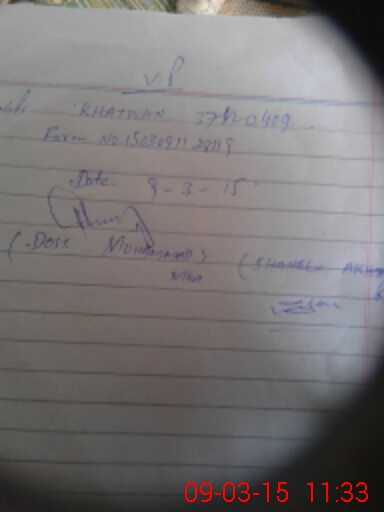 VP
KHATWAN 37420409
Farm No 15030911 28119
Date. 9-3-15
(Dost Muhammad) (SHAHEEN AKH
09-03-15 11:33